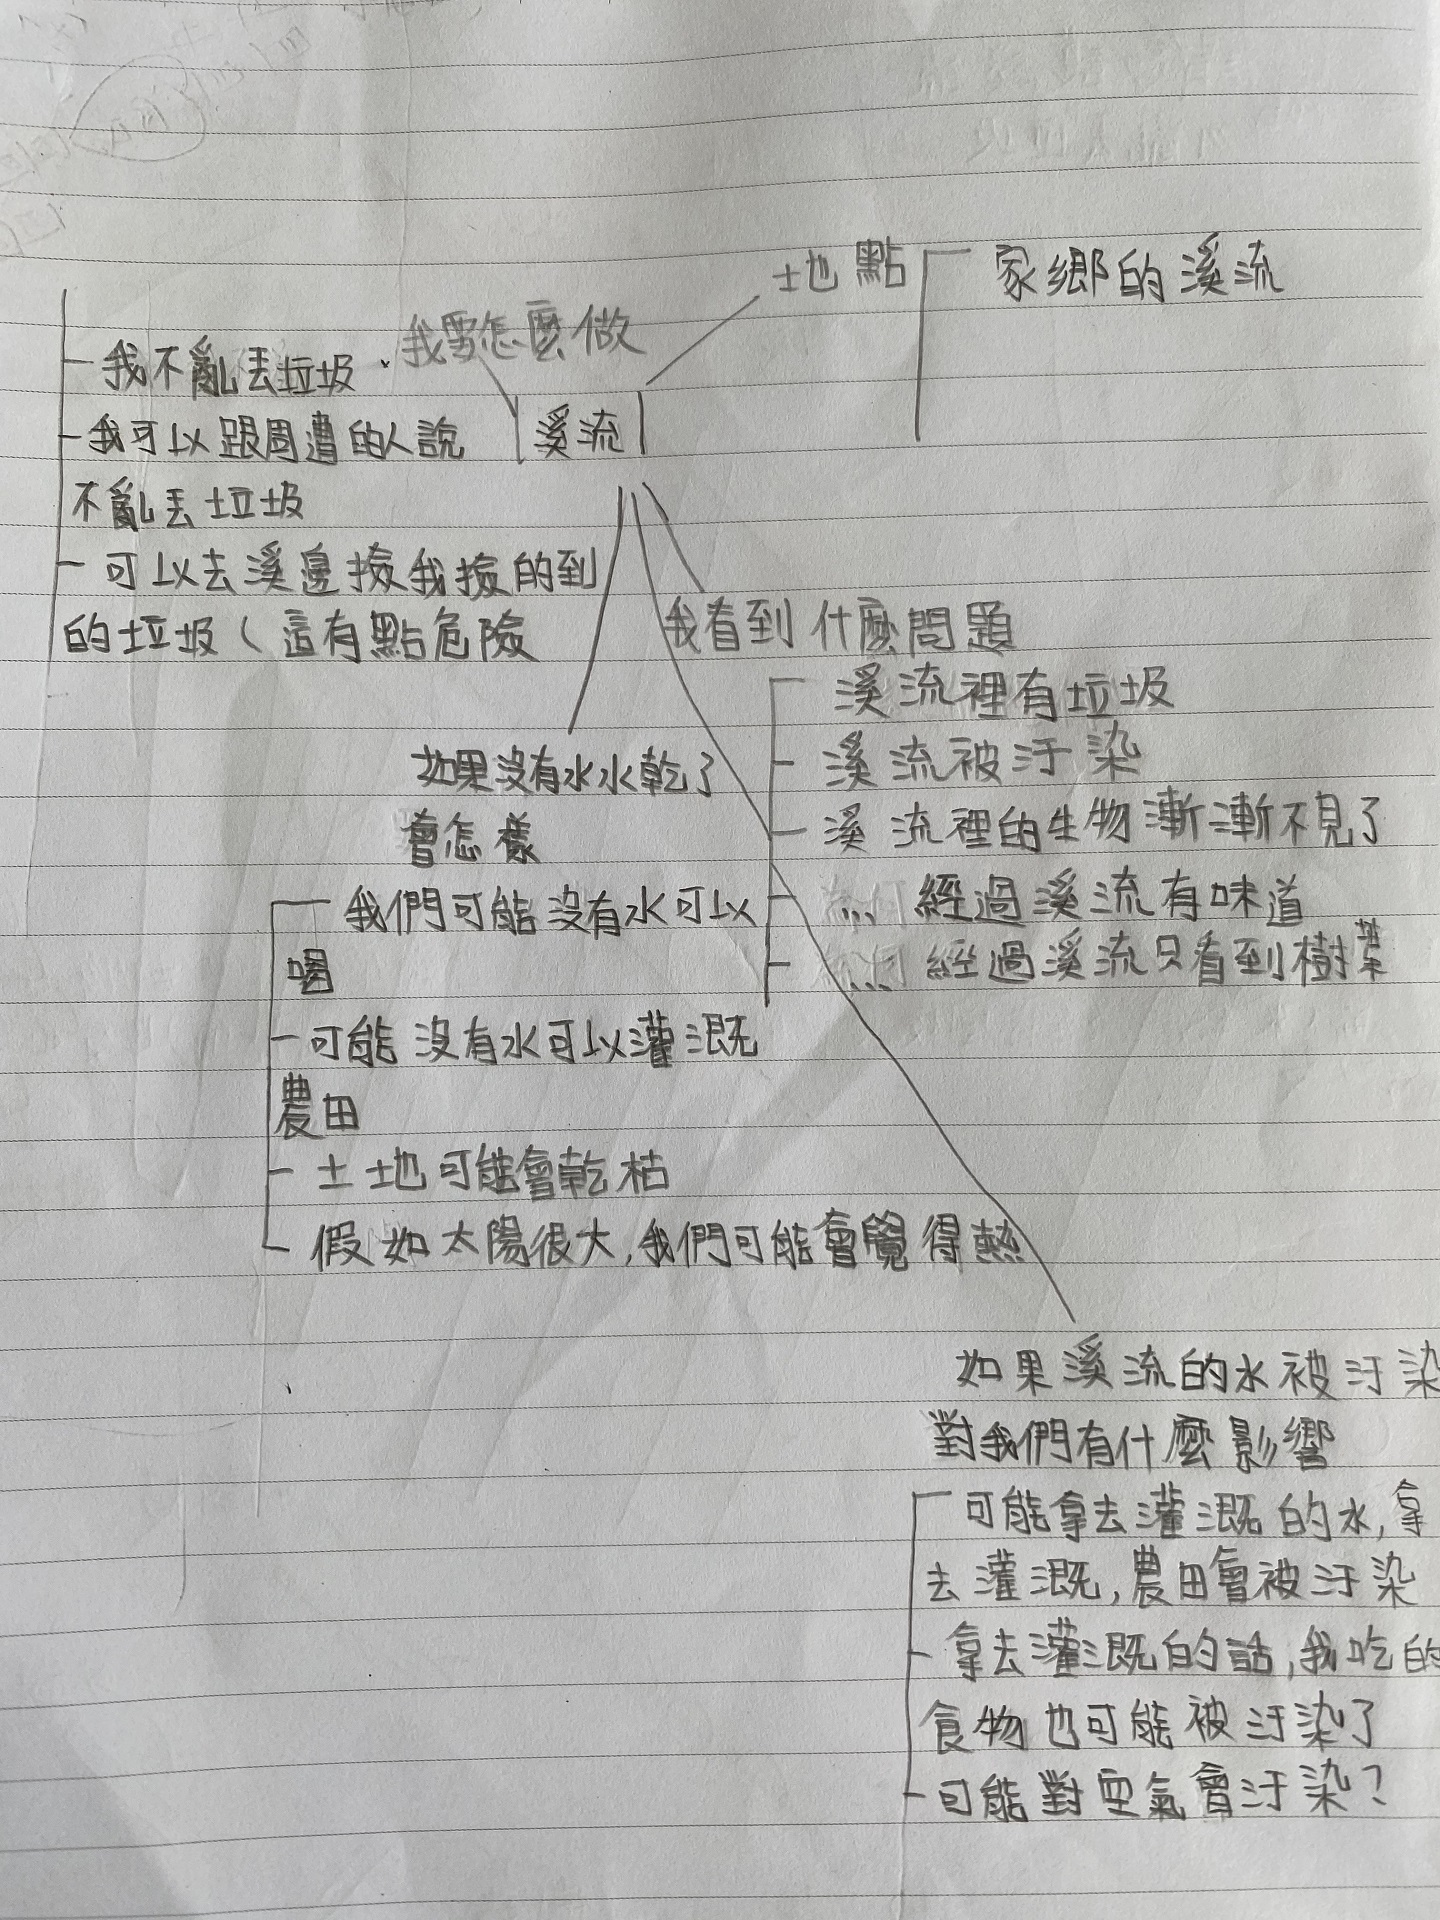 地點
家鄉的溪流
我要怎麼做
我不亂丟垃圾
我可以跟周遭的人說
不亂丟垃圾
可以去溪邊撿我撿的到
的垃圾(這有點危險
溪流
我看到什麼問題
溪流裡有垃圾
溪流被汙染
溪流裡的生物漸漸不見了
... 經過溪流有味道
... 經過溪流只看到樹葉
如果沒有水水乾了
會怎樣
我們可能沒有水可以
喝
可能沒有水可以灌溉
農田
土地可能會乾枯
假如太陽很大,我們可能會覺得熱
如果溪流的水被汙染
對我們有什麼影響
可能拿去灌溉的水,拿
去灌溉,農田會被汙染
拿去灌溉的話,我吃的
食物也可能被汙染了
可能對空氣會汙染?